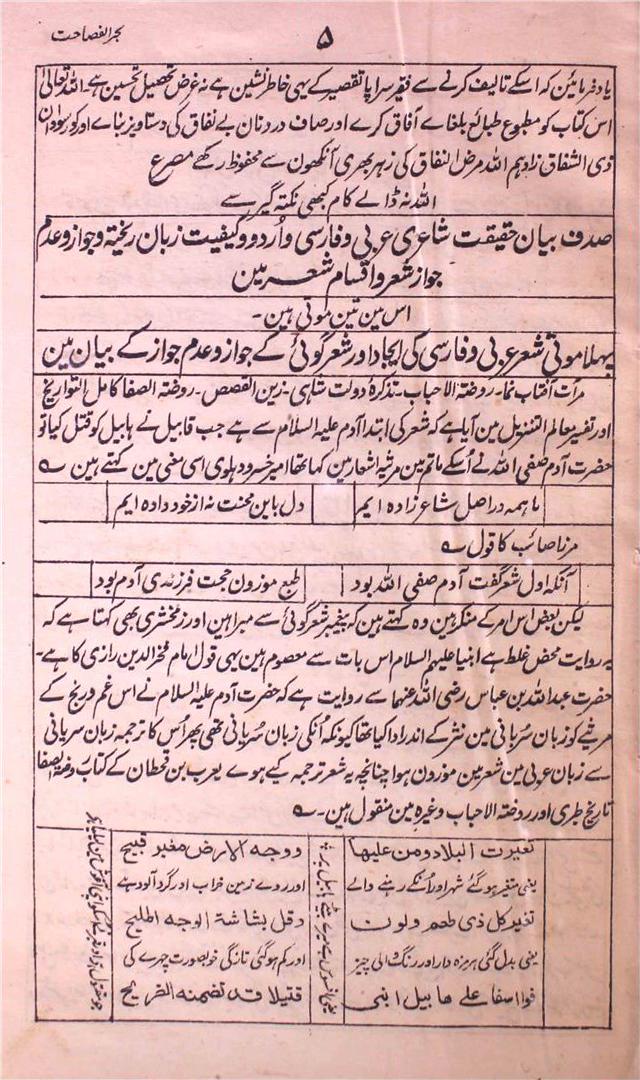 بحر الفصاحت
۵
یاد فرمائین کہ اسکے تالیف کرنے سے فقیر سراپا تقصیر کے یہی خاطر نشین ہے نہ غرض تحصیل تحسین ہے۔ اللہ تعالیٰ
اس کتاب کو مطبوع طبائع بلغاے آفاق کرے اور صاف دردنان بے نفاق کی دستاویز بناے اور کورسوادان
ذی الشقاق زادہم اللہ مرض النفاق کی زہر بھری آنکھون سے محفوظ رکھے مصرع
اللہ نہ ڈالے کام کبھی نکتہ گیر سے
صدف بیان حقیقت شاعری عربی و فارسی و اُردو و کیفیت زبان ریختہ و جواز و عدم
جواز شعر و اقسام شعر مین
اس مین تین موتی ہین۔
پہلا موتی شعر عربی و فارسی کی ایجاد اور شعر گوئی کے جواز و عدم جواز کے بیان مین
مرآت آفتاب نما۔ روضۃ الاحباب۔ تذکرۂ دولت شاہی۔ زین القصص۔ روضۃ الصفا کامل التواریخ
اور تفسیر معالم التنزیل مین آیا ہے کہ شعر کی ابتدا آدم علیہ السلام سے ہے جب قابیل نے ہابیل کو قتل کیا تو
حضرت آدم صفی اللہ نے اُسکے ماتم مین مرثیہ اشعار مین کہا تھا امیر خسرو دہلوی اسی معنی مین کہتے ہین ؎
ما ہمہ در اصل شاعر زادہ ایم
دل باین محنت نہ از خود دادہ ایم
مرزا صائب کا قول ؎
آنکہ اول شعر گفت آدم صفی اللہ بود
طبع موزون حجت فرزندی آدم بود
لیکن بعض اس امر کے منکر ہین وہ کہتے ہین کہ پیغمبر شعر گوئی سے مبرا ہین اور زمخشری بھی کہتا ہے کہ
یہ روایت محض غلط ہے انبیا علیہم السلام اس بات سے معصوم ہین یہی قول امام فخر الدین رازی کا ہے۔
حضرت عبد اللہ بن عباس رضی اللہ عنہما سے روایت ہے کہ حضرت آدم علیہ السلام نے اس غم و رنج کے
مرثیے کو زبان سُریانی مین نثر کے اندر ادا کیا تھا کیونکہ اُنکی زبان سُریانی تھی پھر اُس کا ترجمہ زبان سریانی
سے زبان عربی مین شعر مین موزون ہوا چنانچہ یہ شعر ترجمہ کیے ہوے یعرب بن قحطان کے کتاب روضۃ الصفا
تاریخ طبری اور روضۃ الاحباب وغیرہ مین منقول ہین۔ ؎
تغیرت البلاد ومن علیہا
ووجہ الارض مغبر قبیح
یعنی متغیر ہو گئے شہر اور اُنکے رہنے والے
اور روے زمین خراب اور گرد آلود ہے
تغیر کل ذی طعم ولون
وقل بشاشۃ الوجہ الملیح
یعنی بدل گئی ہر مزہ دار اور رنگ والی چیز
اور کم ہو گئی تازگی خوبصورت چہرے کی
فوااسفا علے ہابیل ابنی
قتیلا قد تضمنہ الضریح
یعنی افسوس ہے میرے بیٹے ہابیل پر